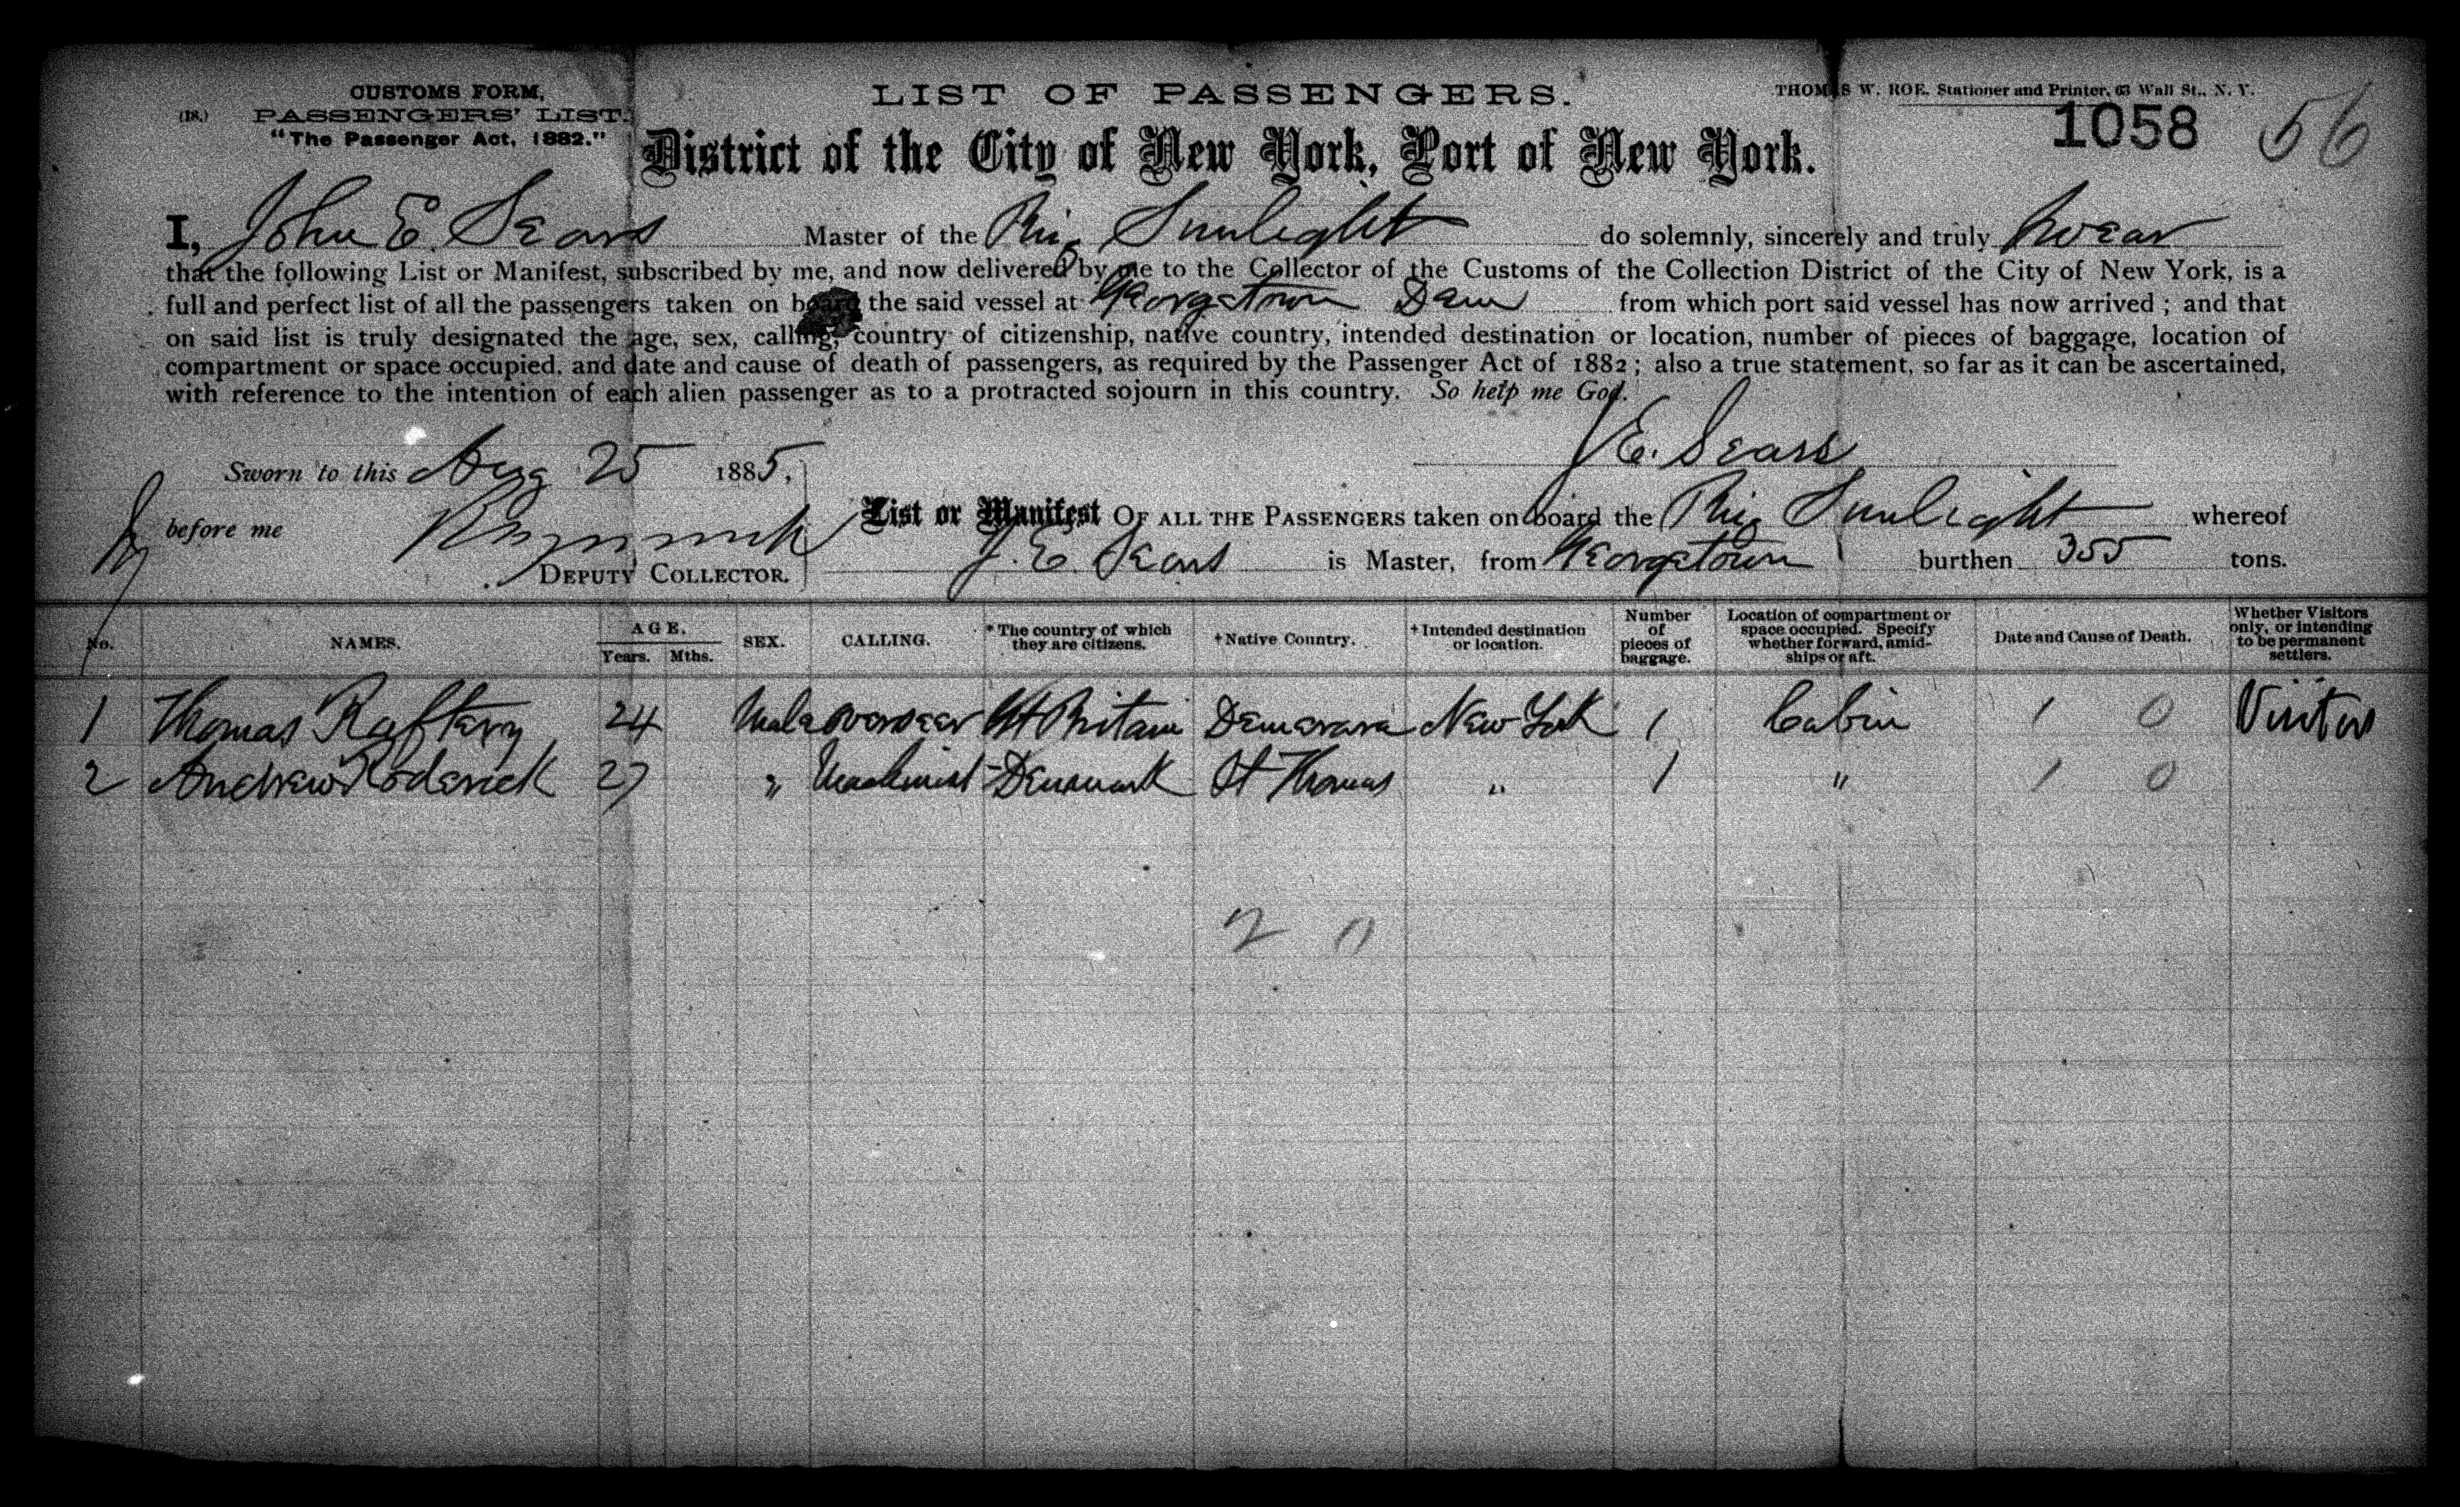 CUSTOMS FORM,
(18.) PASSENGERS' LIST.
"The Passenger Act, 1882."
LIST OF PASSENGERS.
THOMAS W. ROE, Stationer and Printer, 63 Wall St., N. Y.
1058 56
District of the City of New York, Port of New York.
I, John E. Sears Master of the Brig Sunlight do solemnly, sincerely and truly swear
that the following List or Manifest, subscribed by me, and now delivered by me to the Collector of the Customs of the Collection District of the City of New York, is a
full and perfect list of all the passengers taken on board the said vessel at Georgetown Dem from which port said vessel has now arrived ; and that
on said list is truly designated the age, sex, calling, country of citizenship, native country, intended destination or location, number of pieces of baggage, location of
compartment or space occupied, and date and cause of death of passengers, as required by the Passenger Act of 1882 ; also a true statement, so far as it can be ascertained,
with reference to the intention of each alien passenger as to a protracted sojourn in this country. So help me God.
J E. Sears
Sworn to this Aug 25 1885,
before me
DEPUTY COLLECTOR.
List or Manifest OF ALL THE PASSENGERS taken on board the Brig Sunlight whereof
J. E. Sears is Master, from Georgetown burthen 355 tons.
No. NAMES. AGE. Years. Mths. SEX. CALLING. * The country of which they are citizens. † Native Country. † Intended destination or location. Number of pieces of baggage. Location of compartment or space occupied. Specify whether forward, amidships or aft. Date and Cause of Death. Whether Visitors only, or intending to be permanent settlers.
1 Thomas Raftery 24 Male overseer Gt Britain Demerara New York 1 Cabin 1 0 Visitors
2 Andrew Roderick 27 " Machinist Denmark St Thomas " 1 " 1 0
2 0